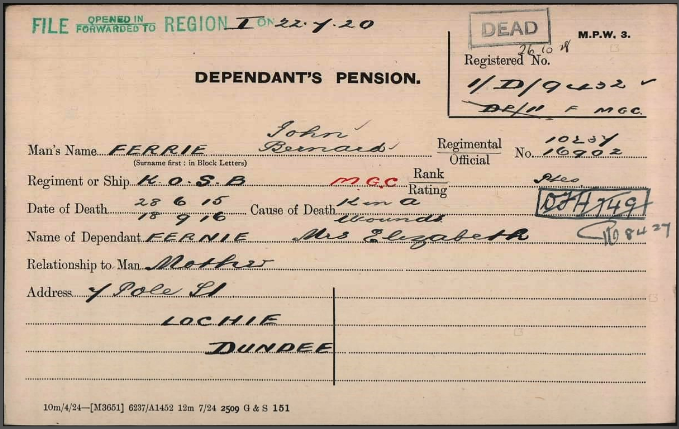 FILE OPENED IN FORWARDED TO REGION I ON 22.7.20
DEAD
M.P.W. 3.
26 10 
Registered No.
1/D/9432
DEPENDANT'S PENSION.
F MGC.
John
Man's Name FERRIE Bernard Regimental Official No. 10237 16902
(Surname first : in Block Letters)
Regiment or Ship K.O.S.B M.G.C Rank Rating Ptes
Date of Death 28 6 15 18 9 16 Cause of Death K in a Wounds
Name of Dependant FERNIE Mrs Elizabeth
8427
Relationship to Man Mother
Address 7 Pole St
LOCHIE
DUNDEE
10m/4/24—[M3651] 6237/A1452 12m 7/24 2509 G & S 151